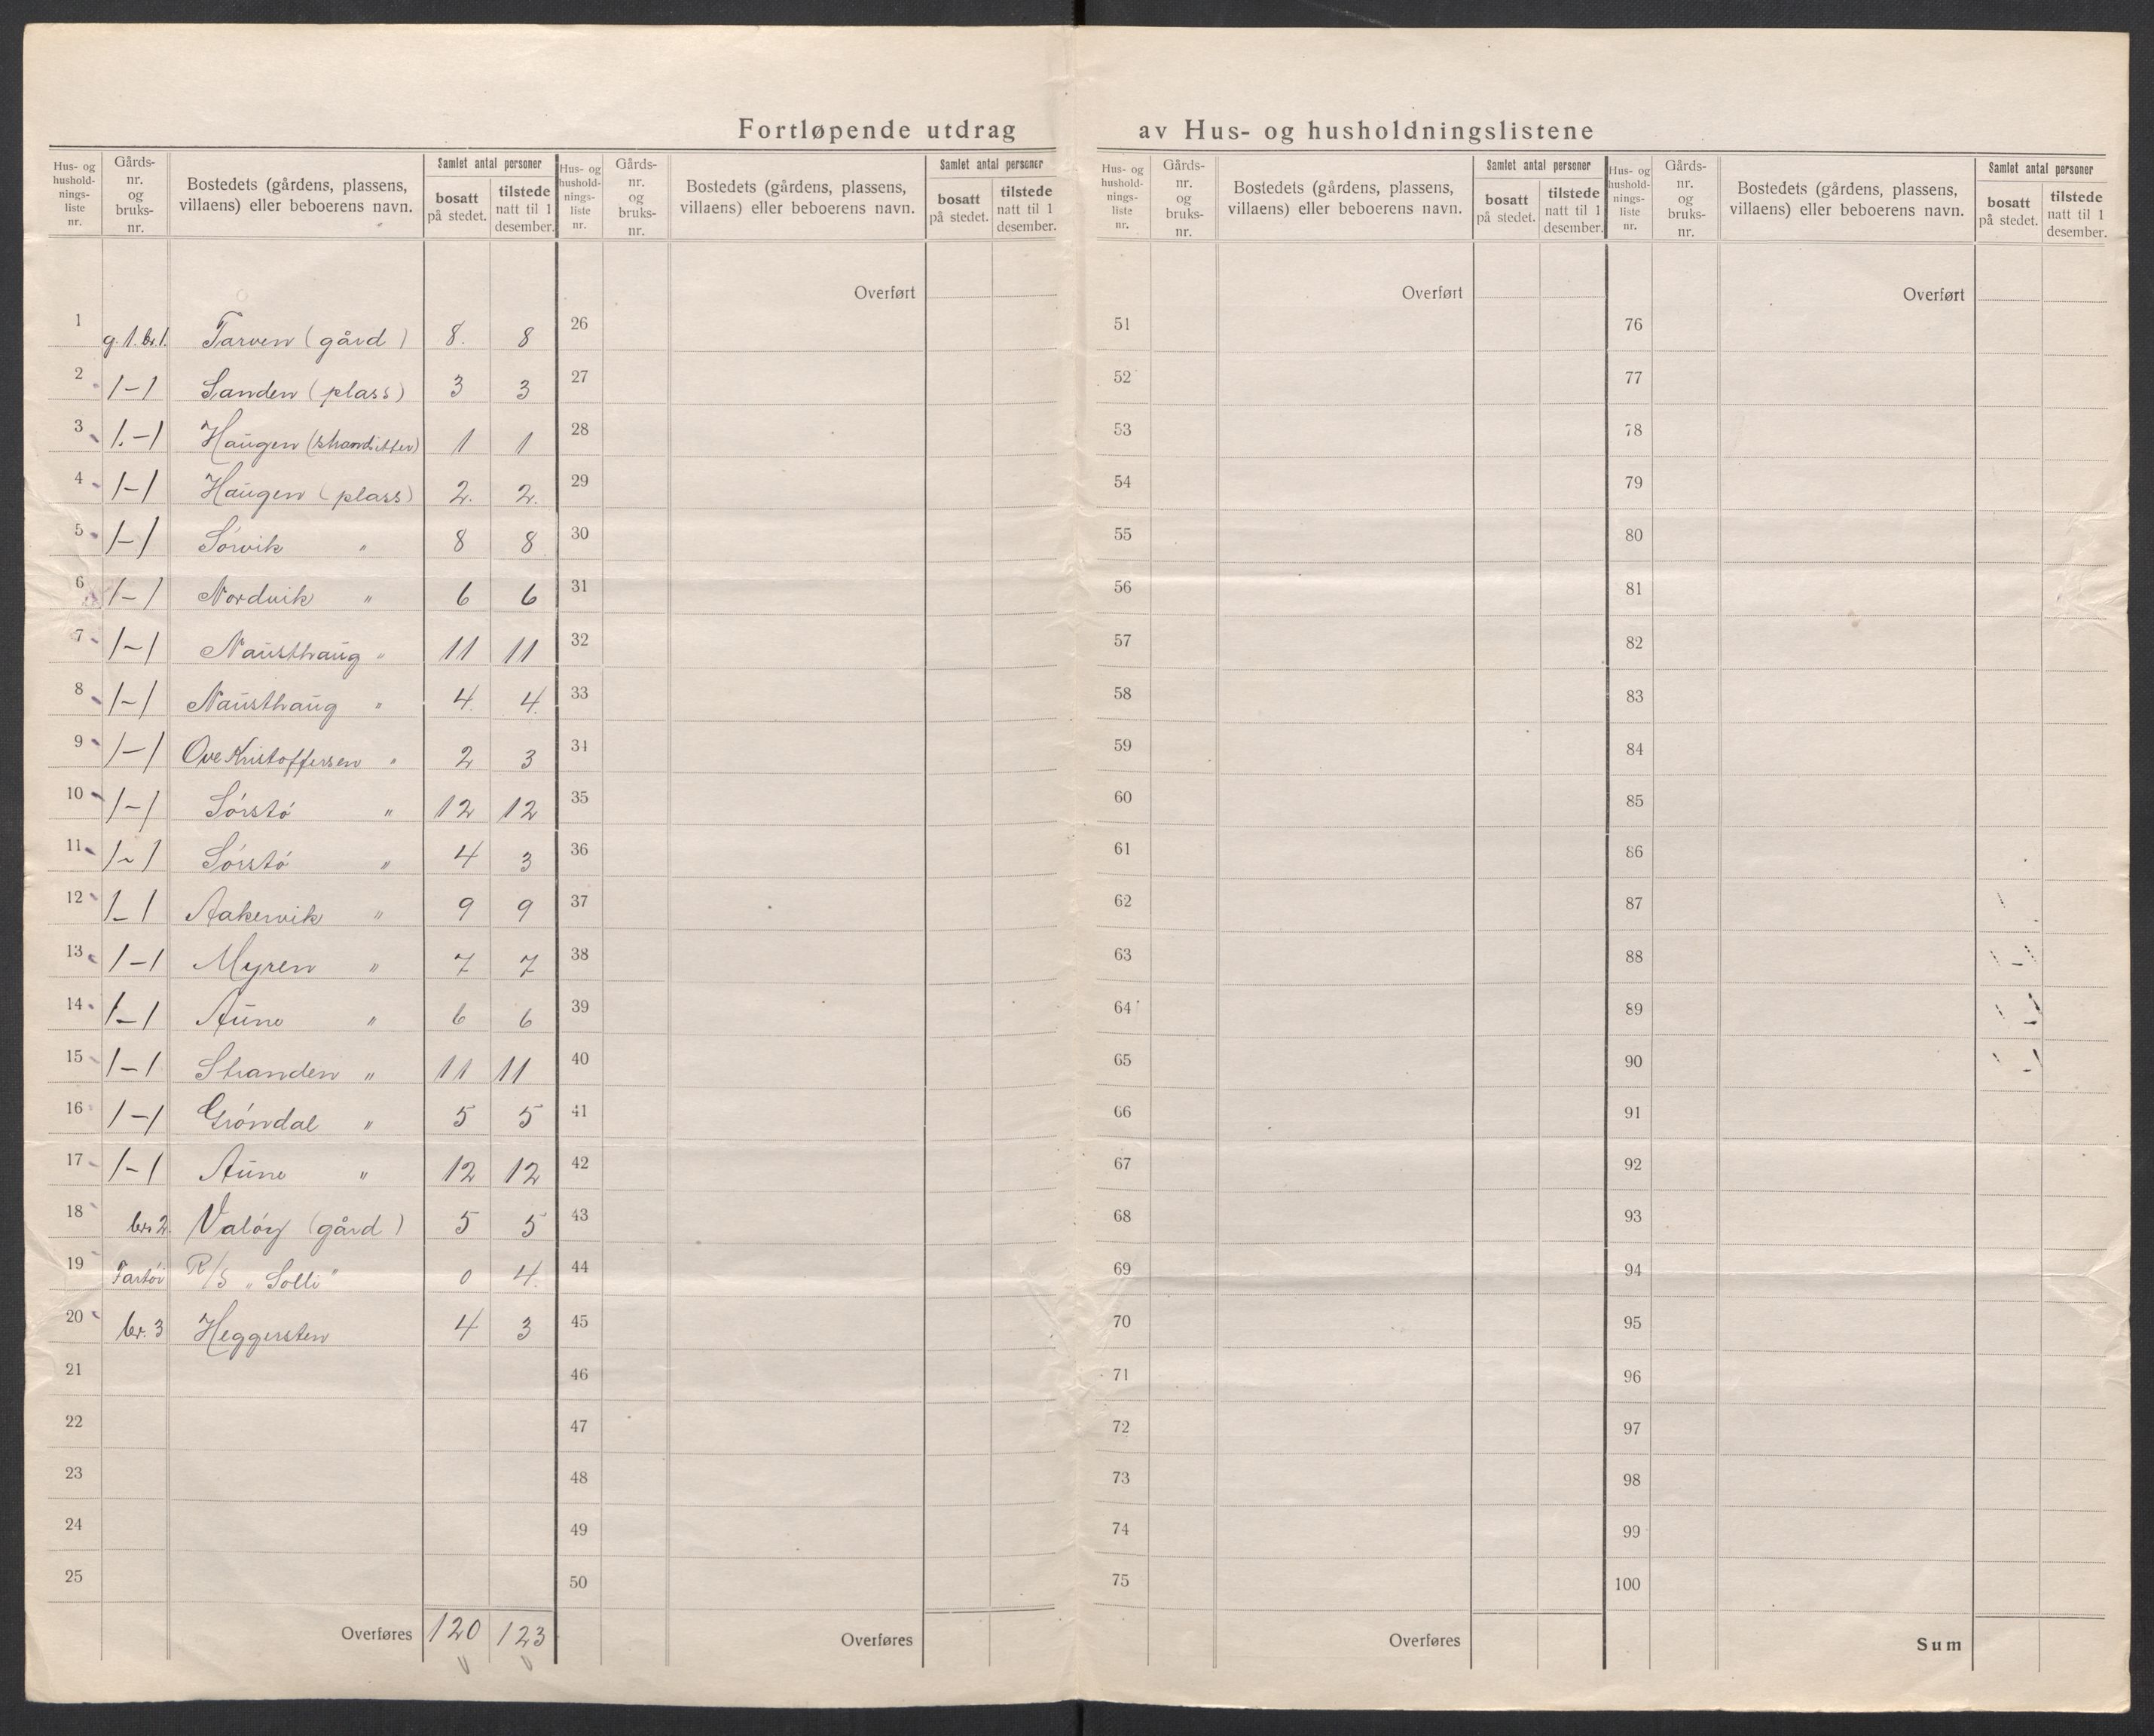 Fortløpende utdrag av Hus- og husholdningslistene
Hus- og hushold- nings- liste nr. | Gårds- nr. og bruks- nr. | Bostedets (gårdens, plassens, villaens) eller beboerens navn. | Samlet antal personer | bosatt på stedet. | tilstede natt til 1 desember.
Hus- og hushold- nings- liste nr. | Gårds- nr. og bruks- nr. | Bostedets (gårdens, plassens, villaens) eller beboerens navn. | Samlet antal personer | bosatt på stedet. | tilstede natt til 1 desember.
Hus- og hushold- nings- liste nr. | Gårds- nr. og bruks- nr. | Bostedets (gårdens, plassens, villaens) eller beboerens navn. | Samlet antal personer | bosatt på stedet. | tilstede natt til 1 desember.
Hus- og hushold- nings- liste nr. | Gårds- nr. og bruks- nr. | Bostedets (gårdens, plassens, villaens) eller beboerens navn. | Samlet antal personer | bosatt på stedet. | tilstede natt til 1 desember.
Overført Overført Overført
1 g. 1. br. 1. Tarven (gård) 8. 8 26 51 76
2 1-1 Sanden (plass) 3 3 27 52 77
3 1.-1 Haugen (strandsitter) 1 1 28 53 78
4 1-1 Haugen (plass) 2. 2. 29 54 79
5 1-1 Sörvik " 8 8 30 55 80
6 1-1 Nordvik " 6 6 31 56 81
7 1-1 Nausthaug " 11 11 32 57 82
8 1-1 Nausthaug " 4. 4. 33 58 83
9 1-1 Ove Kristoffersen " 2 3 34 59 84
10 1-1 Sörstö " 12 12 35 60 85
11 1-1 Sörstö " 4 3 36 61 86
12 1-1 Aakervik " 9 9 37 62 87
13 1-1 Myren " 7 7 38 63 88
14 1-1 Aune " 6 6 39 64 89
15 1-1 Stranden " 11 11 40 65 90
16 1-1 Gröndal " 5 5 41 66 91
17 1-1 Aune " 12 12 42 67 92
18 br. 2. Valöy (gård) 5 5 43 68 93
19 Fartöi R/S "Solli" 0 4. 44 69 94
20 br. 3 Heggersten 4 3 45 70 95
21 46 71 96
22 47 72 97
23 48 73 98
24 49 74 99
25 50 75 100
Overføres 120 123 Overføres Overføres Sum